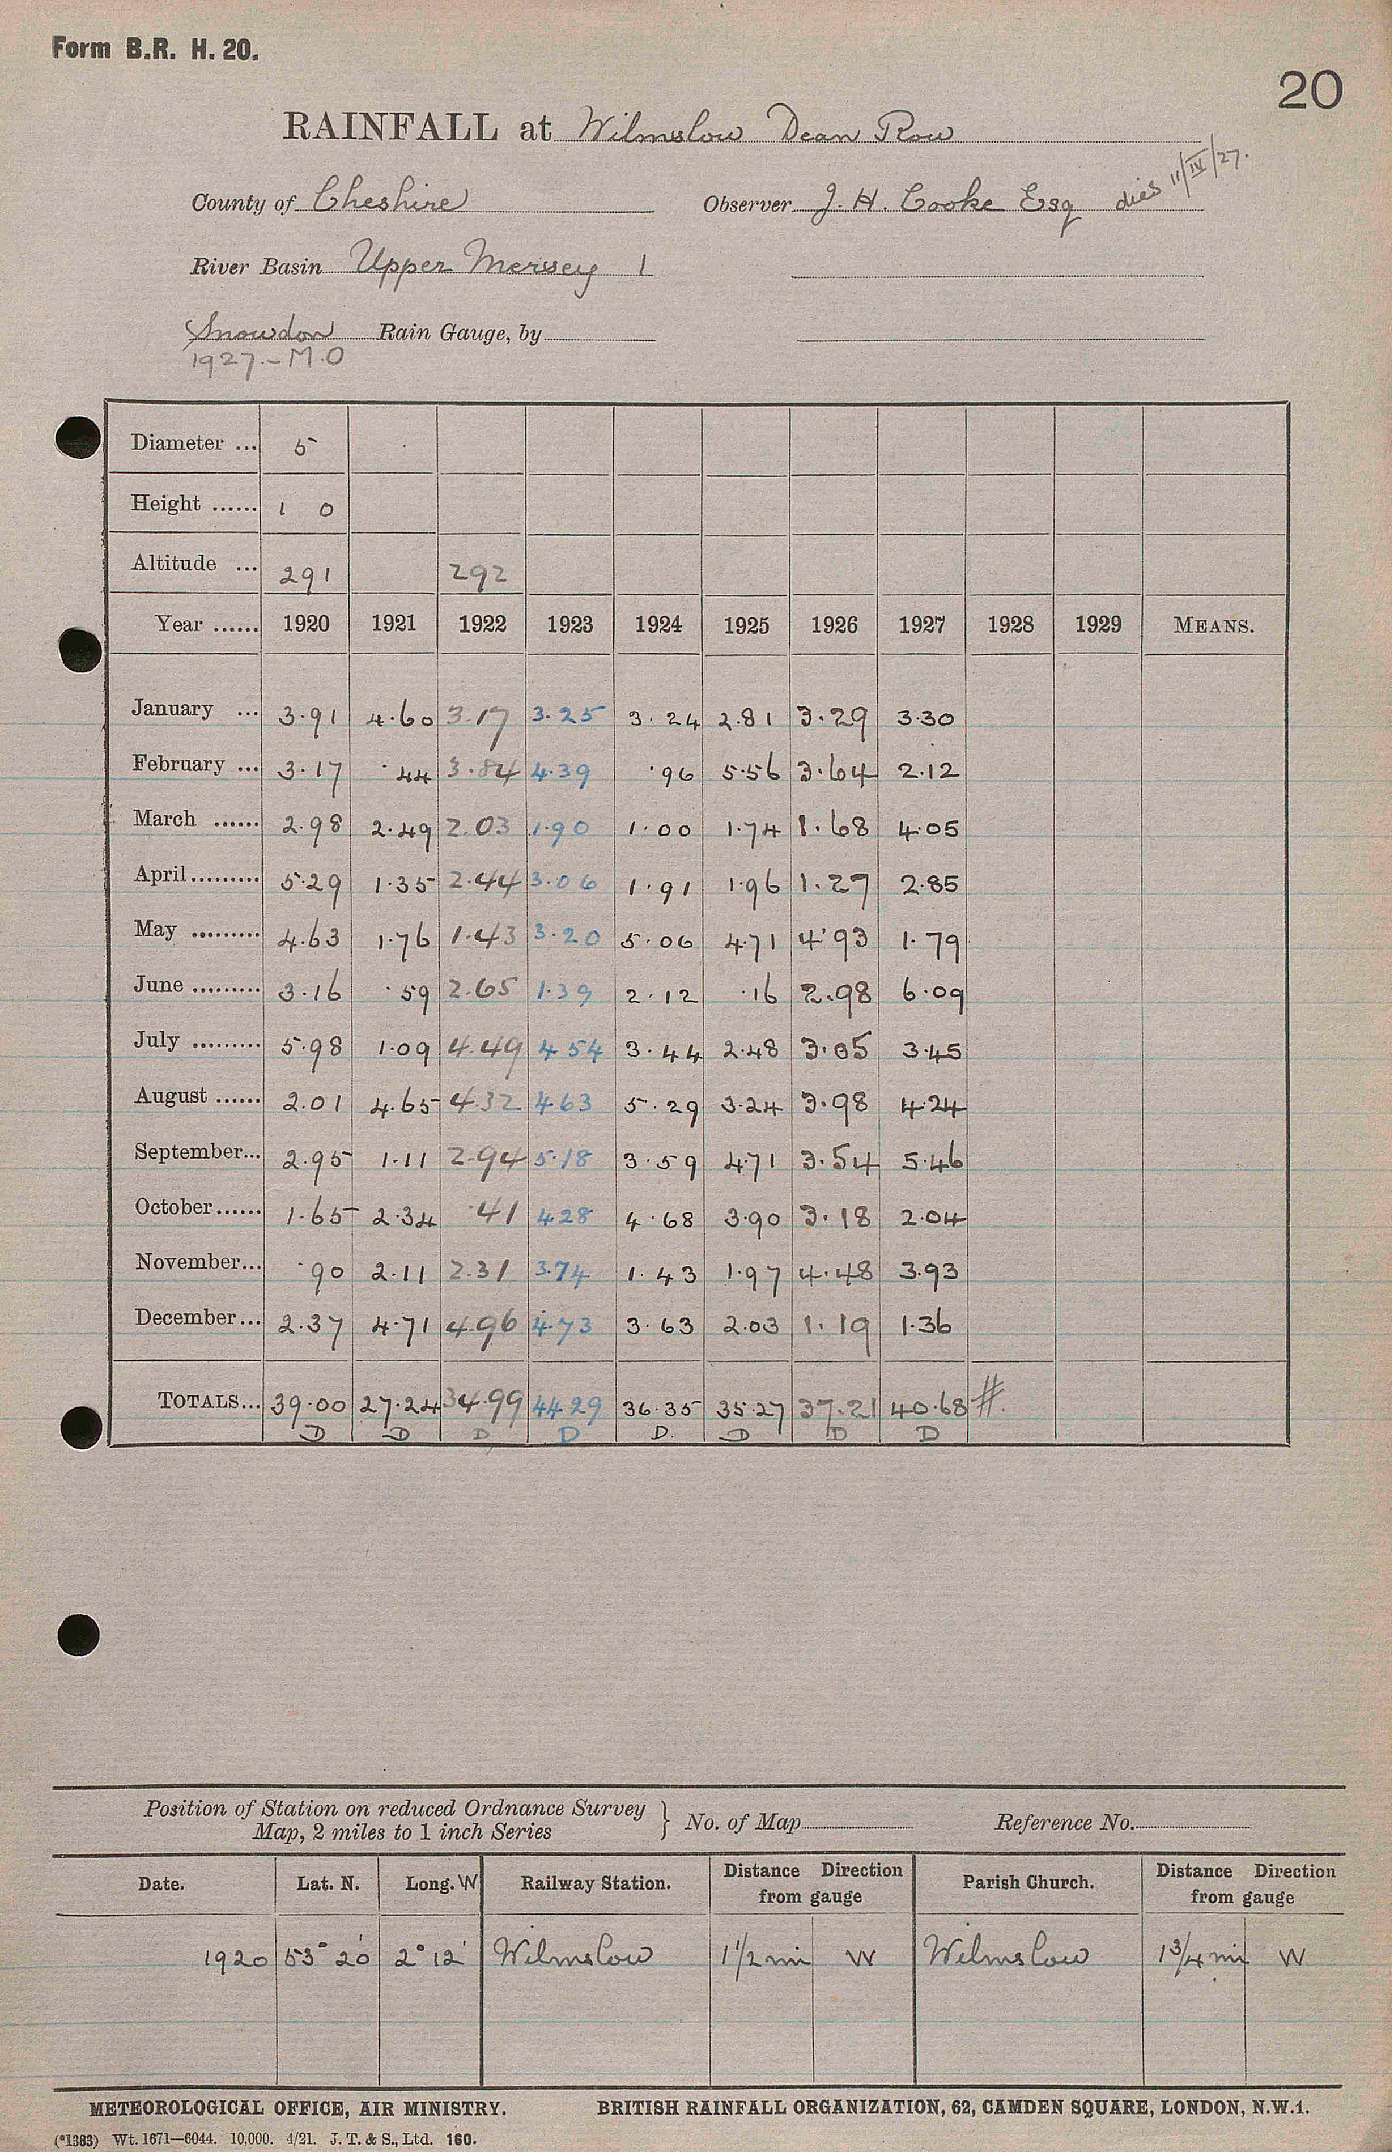 Form B.R. H. 20.
20
RAINFALL at Wilmslow Dean Row
County of Cheshire Observer J. H. Cooke Esq dies 11/IV/27.
River Basin Upper Mersey 1
Snowdon Rain Gauge, by
1927.- M.O
Diameter ... 5
Height ...... 1 0
Altitude ... 291 292
Year ...... 1920 1921 1922 1923 1924 1925 1926 1927 1928 1929 MEANS.
January ... 3.91 4.60 3.17 3.25 3.24 2.81 3.29 3.30
February ... 3.17 .44 3.84 4.39 .96 5.56 3.64 2.12
March ...... 2.98 2.49 2.03 1.90 1.00 1.74 1.68 4.05
April ......... 5.29 1.35 2.44 3.06 1.91 1.96 1.27 2.85
May ......... 4.63 1.76 1.43 3.20 5.06 4.71 4.93 1.79
June ......... 3.16 .59 2.65 1.39 2.12 .16 2.98 6.09
July ......... 5.98 1.09 4.49 4.54 3.44 2.48 3.05 3.45
August ...... 2.01 4.65 4.32 4.63 5.29 3.24 3.98 4.24
September... 2.95 1.11 2.94 5.18 3.59 4.71 3.54 5.46
October ...... 1.65 2.34 .41 4.28 4.68 3.90 3.18 2.04
November... .90 2.11 2.31 3.74 1.43 1.97 4.48 3.93
December... 2.37 4.71 4.96 4.73 3.63 2.03 1.19 1.36
TOTALS... 39.00 27.24 34.99 44.29 36.35 35.27 37.21 40.68 #.
D D D D D. D D D
Position of Station on reduced Ordnance Survey
Map, 2 miles to 1 inch Series } No. of Map Reference No.
Date. Lat. N. Long. W Railway Station. Distance Direction from gauge Parish Church. Distance Direction from gauge
1920 53° 20' 2° 12' Wilmslow 1 1/2 mi W Wilmslow 1 3/4 mi W
METEOROLOGICAL OFFICE, AIR MINISTRY. BRITISH RAINFALL ORGANIZATION, 62, CAMDEN SQUARE, LONDON, N.W.1.
(*1383) Wt. 1671—6044. 10,000. 4/21. J. T. & S., Ltd. 160.